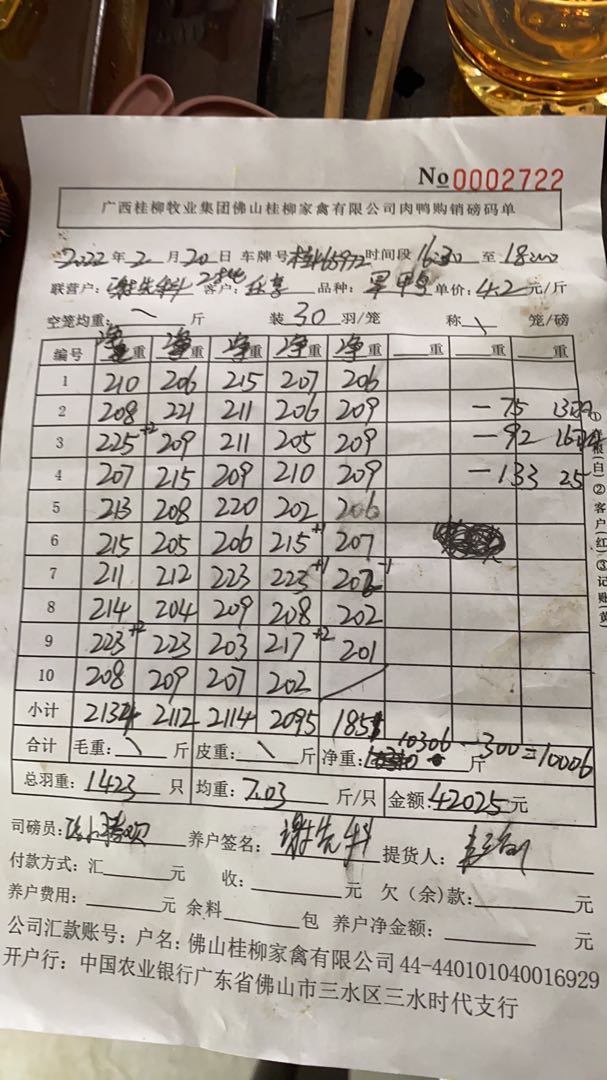 No 0002722
广西桂柳牧业集团佛山桂柳家禽有限公司肉鸭购销磅码单
2022年2月20日 车牌号 时间段16:30至18:00
联营户:谢先科 客户: 品种: 单价:4.2元/斤
空笼均重:\斤 装30羽/笼 称\笼/磅
编号 净重 净重 净重 净重 净重 重 重 重
1 210 206 215 207 206
2 208 221 211 206 209 -75
3 225+2 209 211 205 209 -92
4 207 215 209 210 209 -133 25
5 213 208 220 202 206
6 215 205 206 215+1 207
7 211 212 223 223+1 -1
8 214 204 209 208 202
9 223+2 223 203 217+2 201
10 208 209 207 202 /
小计 2134 2112 2114 2095 185
合计 毛重:\斤 皮重:\斤 净重: 10306-300=10006 斤
总羽重:1423只 均重:7.03斤/只 金额:42025元
司磅员: 养户签名:谢先科 提货人:
付款方式:汇 元 收: 元 欠(余)款: 元
养户费用: 元 余料 包 养户净金额: 元
公司汇款账号:户名:佛山桂柳家禽有限公司 44-440101040016929
开户行:中国农业银行广东省佛山市三水区三水时代支行
(白)②客户(红)③记账(黄)